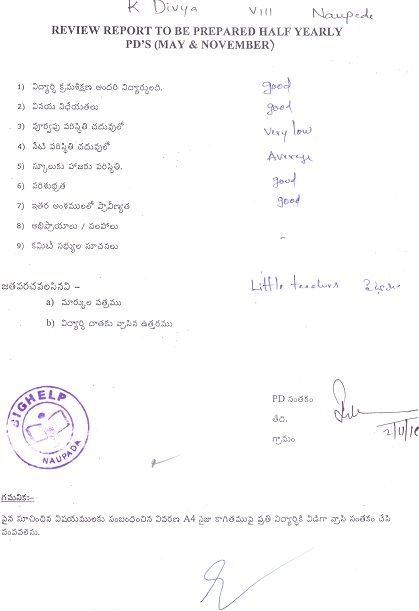 K Divya VIII Naupada
REVIEW REPORT TO BE PREPARED HALF YEARLY
PD'S (MAY & NOVEMBER)
1) విద్యార్ధి క్రమశిక్షణ అందరి విద్యార్ధులది. good
2) వినయ విధేయతలు good
3) పూర్వపు పరిస్థితి చదువులో very low
4) నేటి పరిస్థితి చదువులో Average
5) స్కూలుకు హాజరు పరిస్థితి. good
6) పరిశుభ్రత good
7) ఇతర అంశములలో ప్రావీణ్యత
8) అభిప్రాయాలు / సలహాలు
9) కమిటీ సభ్యుల సూచనలు -
జతపరచవలసినవి – Little teachers
a) మార్కుల పత్రము
b) విద్యార్ధి దాతకు వ్రాసిన ఉత్తరము
BIGHELP
NAUPADA
PD సంతకం
తేది.
గ్రామం
గమనిక:-
పైన సూచించిన విషయములకు సంబంధించిన వివరణ A4 సైజు కాగితముపై ప్రతి విద్యార్ధికి విడిగా వ్రాసి సంతకం చేసి
పంపవలెను.